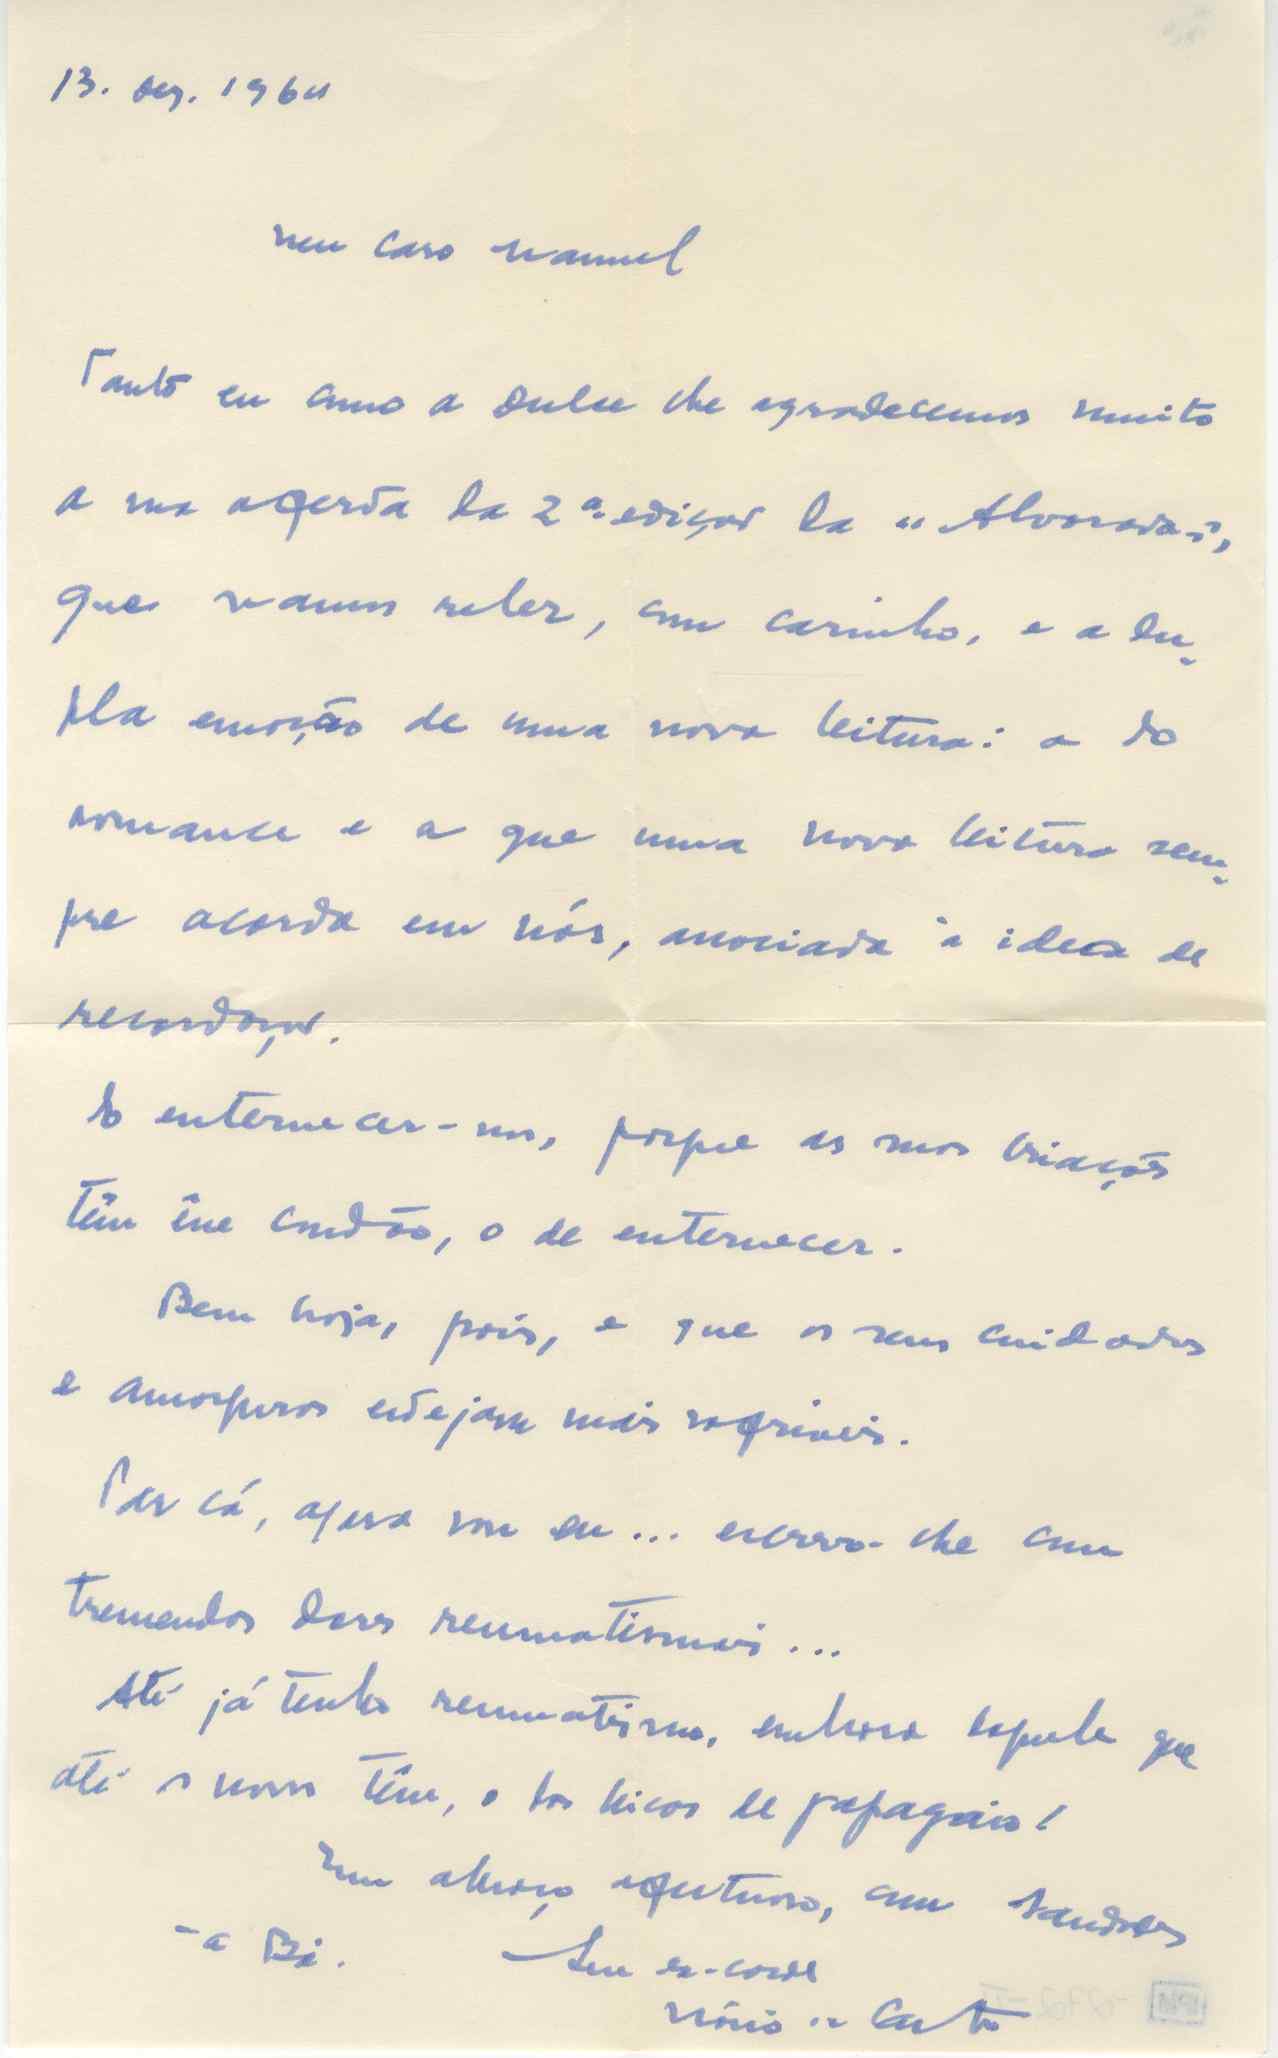 13. Dez. 1964
Meu caro Manuel
Tanto eu como a Dulce lhe agradecemos muito
a sua oferta da 2ª. edição da "Alvorada",
que vamos reler, com carinho, e a du-
pla emoção de uma nova leitura: a do
romance e a que uma nova leitura sem-
pre acorda em nós, associada à ideia de
recordação.
E enternecer-nos, porque as suas criações
têm êsse condão, o de enternecer.
Bem haja, pois, e que os seus cuidados
e amarguras estejam mais sofríveis.
Por cá, agora sou eu... escrevo-lhe com
tremendas dores reumatismais...
Até já tenho reumatismo, embora daquele que
até o nosso têm, o dos bicos de papagaio!
Um abraço afectuoso, com saudades
à Bá.
Seu ex-corde
Mário de Castro